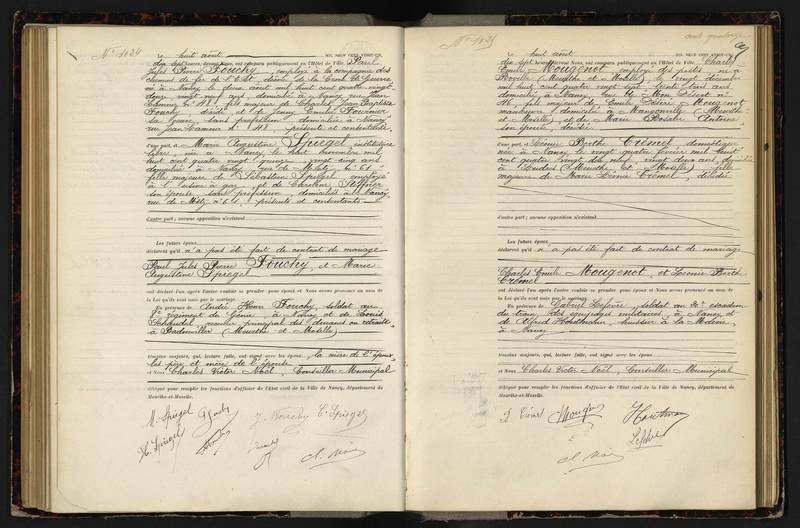 N° 1024
Le huit août MIL NEUF CENT VINGT-UN,
dix sept heures, devant Nous, ont comparu publiquement en l'Hôtel de Ville Paul
Jules Pierre Fouchy, employé à la compagnie des
chemins de fer de l'Est, décoré de la Croix de Guerre
né à Nancy, le deux août mil huit cent quatre vingt
douze, vingt neuf ans, domicilié à Nancy, rue Jean
Lamour n° 48, fils majeur de Charles Jean Baptiste
Fouchy, décédé, et de Jenny Emilie Fournier
sa veuve, sans profession, domiciliée à Nancy
rue Jean Lamour n° 48 présente et consentante
d'une part, et Marie Augustine Spiegel, institutrice
née à Nancy, le huit novembre mil
huit cent quatre vingt quinze, vingt cinq ans
domiciliée à Nancy, rue de n° 61
fille majeure de Sébastien Spiegel, employé
à l'usine à gaz, et de Caroline
son épouse, sans profession, domiciliés à Nancy
rue de n° 61, présents et consentants
d'autre part; aucune opposition n'existant
Les futurs époux
déclarent qu'il n'a pas été fait de contrat de mariage
Paul Jules Pierre Fouchy, et Marie
Augustine Spiegel
ont déclaré l'un après l'autre vouloir se prendre pour époux et Nous avons prononcé au nom de
la Loi qu'ils sont unis par le mariage.
En présence de André Henri Fouchy, soldat au
8e régiment du Génie, à Nancy et de Louis
receveur principal des douanes en retraite
à Badonviller (Meurthe et Moselle)
témoins majeurs, qui, lecture faite, ont signé avec les époux, la mère de l'époux
les père et mère de l'épouse
et Nous Charles Victor Noël, Conseiller Municipal
délégué pour remplir les fonctions d'officier de l'Etat civil de la Ville de Nancy, département de
Meurthe-et-Moselle.
M. Spiegel J. Fouchy C. Spiegel
N° 1025
Le huit août MIL NEUF CENT VINGT-UN,
dix sept heures, devant Nous, ont comparu publiquement en l'Hôtel de Ville Charles
Emile Mougenot, employé des postes, né à
(Meurthe et Moselle), le vingt décembre
mil huit cent quatre vingt
domicilié à Nancy, rue
46, fils majeur de Emile Mougenot
manoeuvre, domicilié à (Meurthe
et Moselle), et de Marie Rosalie Antoine
son épouse, décédée
d'une part, et Léonie Berthe Crémel, domestique
née à Nancy, le quatre février mil huit
cent quatre vingt dix neuf, vingt deux ans, domiciliée
à (Meurthe et Moselle), fille
majeure de Marie Léonie Crémel, décédée
d'autre part; aucune opposition n'existant
Les futurs époux
déclarent qu'il n'a pas été fait de contrat de mariage
Charles Emile Mougenot, et Léonie Berthe
Crémel
ont déclaré l'un après l'autre vouloir se prendre pour époux et Nous avons prononcé au nom de
la Loi qu'ils sont unis par le mariage.
En présence de Gabriel Lefèvre, soldat au 20e escadron
du train des équipages militaires, à Nancy et
de Alfred huissier à la
à Nancy
témoins majeurs, qui, lecture faite, ont signé avec les époux
et Nous Charles Victor Noël, Conseiller Municipal
délégué pour remplir les fonctions d'officier de l'Etat civil de la Ville de Nancy, département de
Meurthe-et-Moselle.